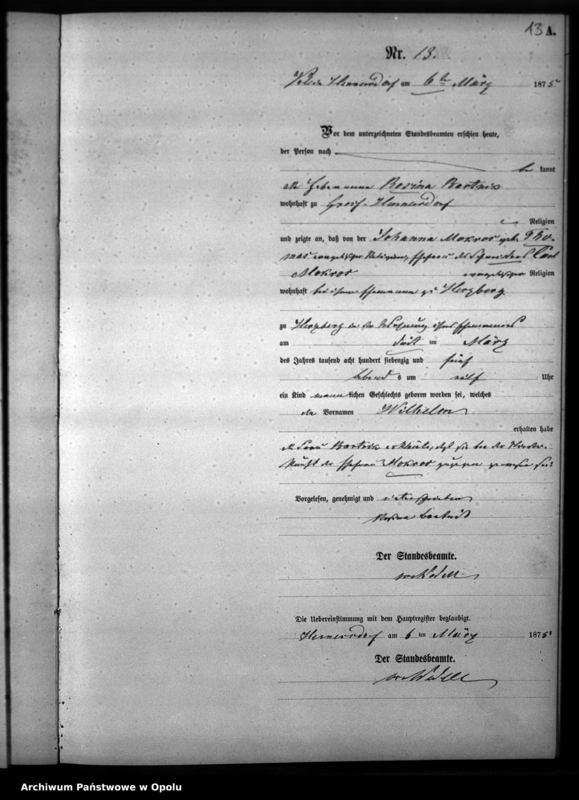 13 A.
Nr. 13.
Hennersdorf am 6ten März 1875
Vor dem unterzeichneten Standesbeamten erschien heute,
der Person nach
be kannt
die Hebamme Rosina Bartnis
wohnhaft zu Groß-Hennersdorf
Religion
und zeigte an, daß von der Johanna Mokros geb.
evangelischer Religion, Ehefrau des Carl
Mokros evangelischer Religion
wohnhaft bei ihrem Ehemanne zu Herzberg
zu Herzberg in der Wohnung ihres Ehemannes
am im März
des Jahres tausend acht hundert siebenzig und fünf
Abend s um elf Uhr
ein Kind männ lichen Geschlechts geboren worden sei, welches
den Vornamen Wilhelm
erhalten habe
die Frau erklärte, daß sie bei der Niederkunft der Ehefrau Mokros zugegen gewesen sei
Vorgelesen, genehmigt und unterschrieben
Rosina Bartnis
Der Standesbeamte.
Die Uebereinstimmung mit dem Hauptregister beglaubigt.
Hennersdorf am 6 ten März 1875
Der Standesbeamte.
Archiwum Państwowe w Opolu